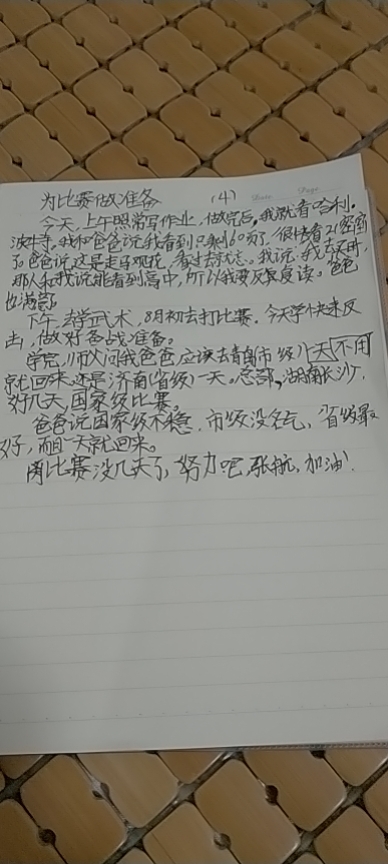 为比赛做准备 (4)
今天,上午照常写作业,做完后,我就看哈利.
波特,我和爸爸说我看到只剩160页了,很快看到密室
了。爸爸说,这是走马观花,看过去就忘。我说:我去买时,
那人和我说能看到高中,所以我要反复读。爸爸
也满意。
下午,去学武术,8月初去打比赛,今天学快来反
击,做好备战准备。
学完,师父问我爸爸应该去青岛(市级)1天不用
就回来,还是济南(省级)一天。总部,湖南长沙,
好几天,国家级比赛。
爸爸说国家级不稳,市级没名气,省级最
好,而且一天就回来。
离比赛没几天了,努力吧,张航,加油!